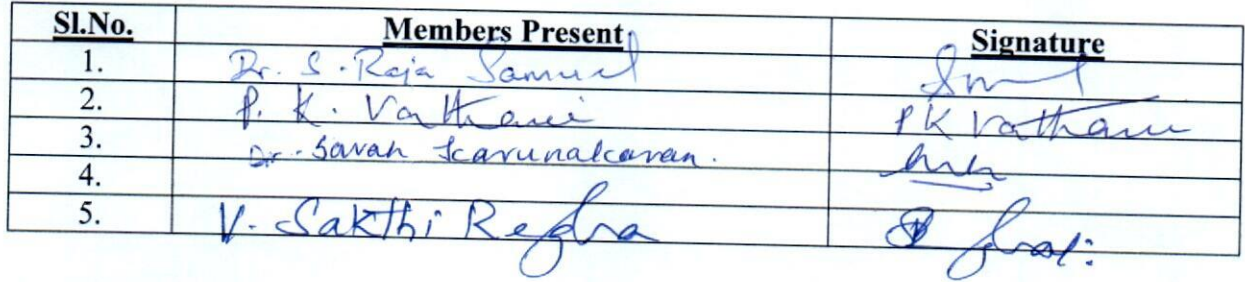 Sl.No. Members Present Signature
1. Dr. S. Raja Samuel
2. P. K. Vathani PK Vathani
3. Dr. Sarah Karunakaran.
4.
5. V. Sakthi Regha